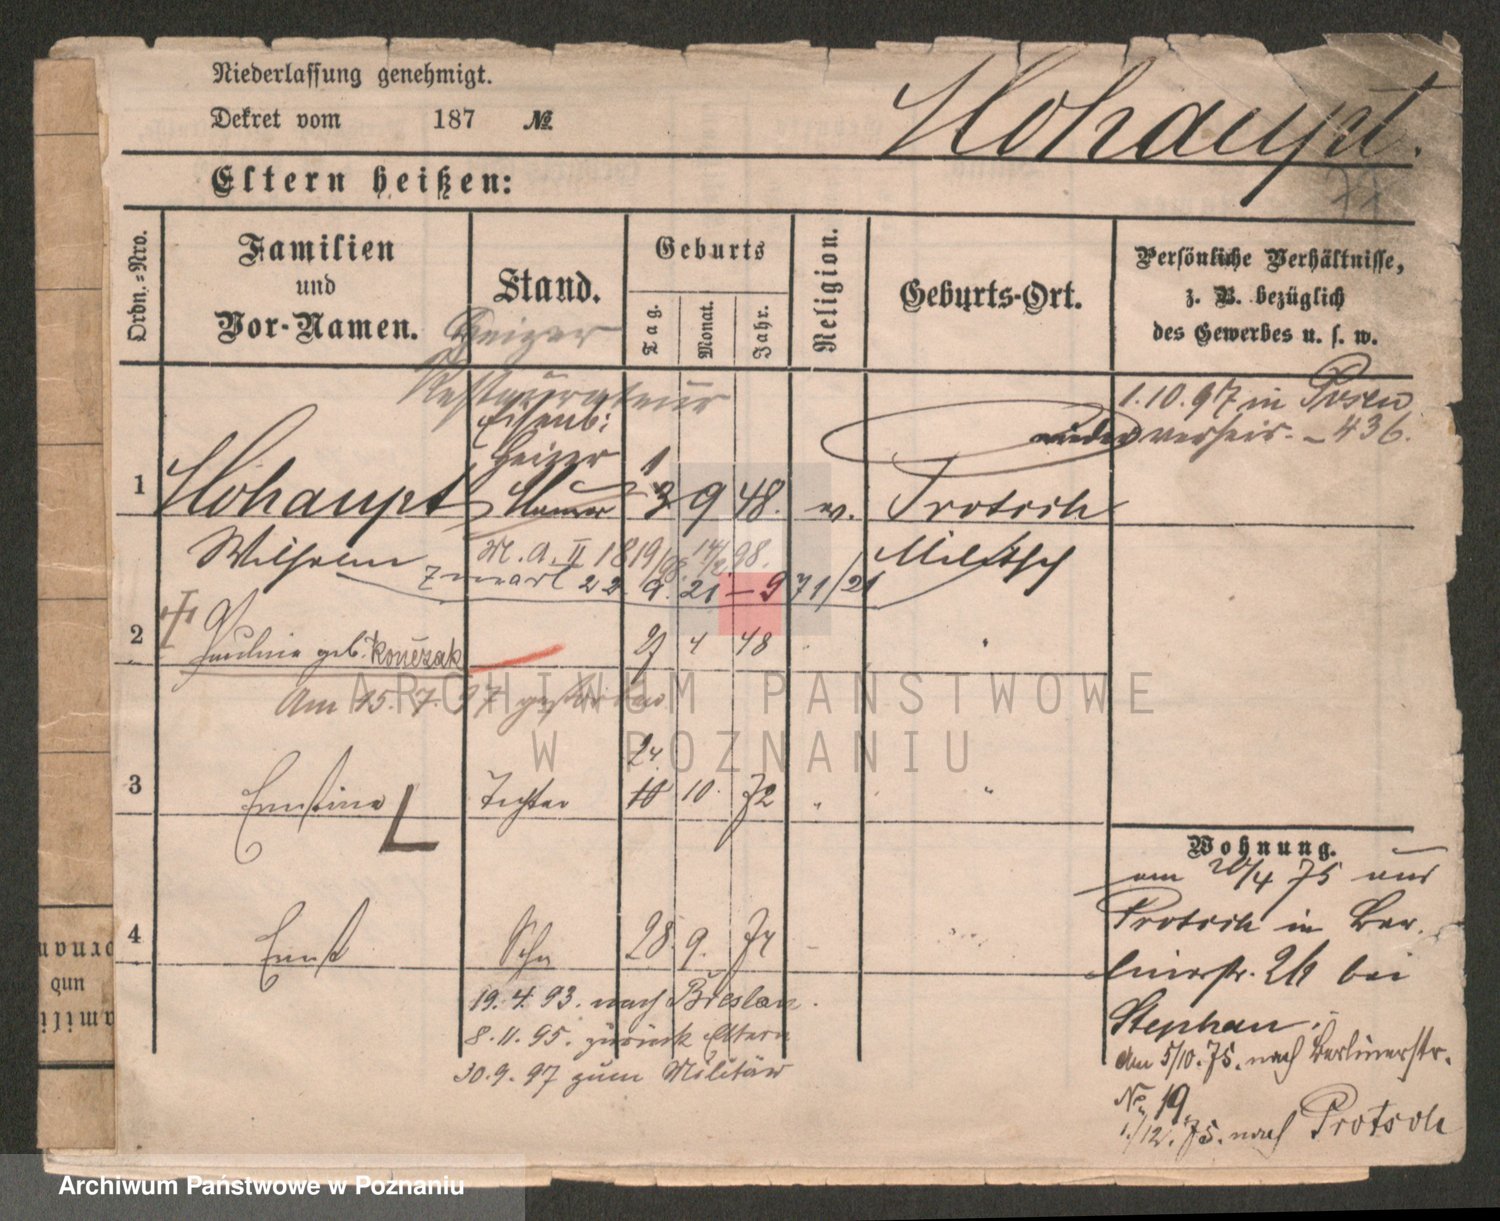 Niederlassung genehmigt.
Dekret vom 187 №
Hohaupt.
Eltern heißen:
Ordn.=Nro.
Familien
und
Vor-Namen.
Stand.
Geburts
Tag.
Monat.
Jahr.
Religion.
Geburts-Ort.
Persönliche Verhältnisse,
z. B. bezüglich
des Gewerbes u. s. w.
Heizer
Restaurateur
Eisenb:
Heizer
1.10.97 in Posen
wieder verheir. – 436.
1 Hohaupt 3 9 48. ev. Protsch
Wilhelm Militsch
22 9. 21 – 971/21
2 Pauline geb. Konczak 27 4 48
Am 15.7.97 gestorben
24
3 Ernstine Tochter 10 10. 72 "
4 Ernst Sohn 28. 9. 74
19.4.93. nach Breslau.
8.11.95. zurück Eltern
30.9.97 zum Militär
Wohnung.
am 20/4 75 aus
Protsch in Ber-
linerstr. bei
Stephan.
Am 5/10.75. nach Berlinerstr.
No. 19.
1./12.75. nach Protsch
ornan
und
amili
ARCHIWUM PAŃSTWOWE
W POZNANIU
Archiwum Państwowe w Poznaniu